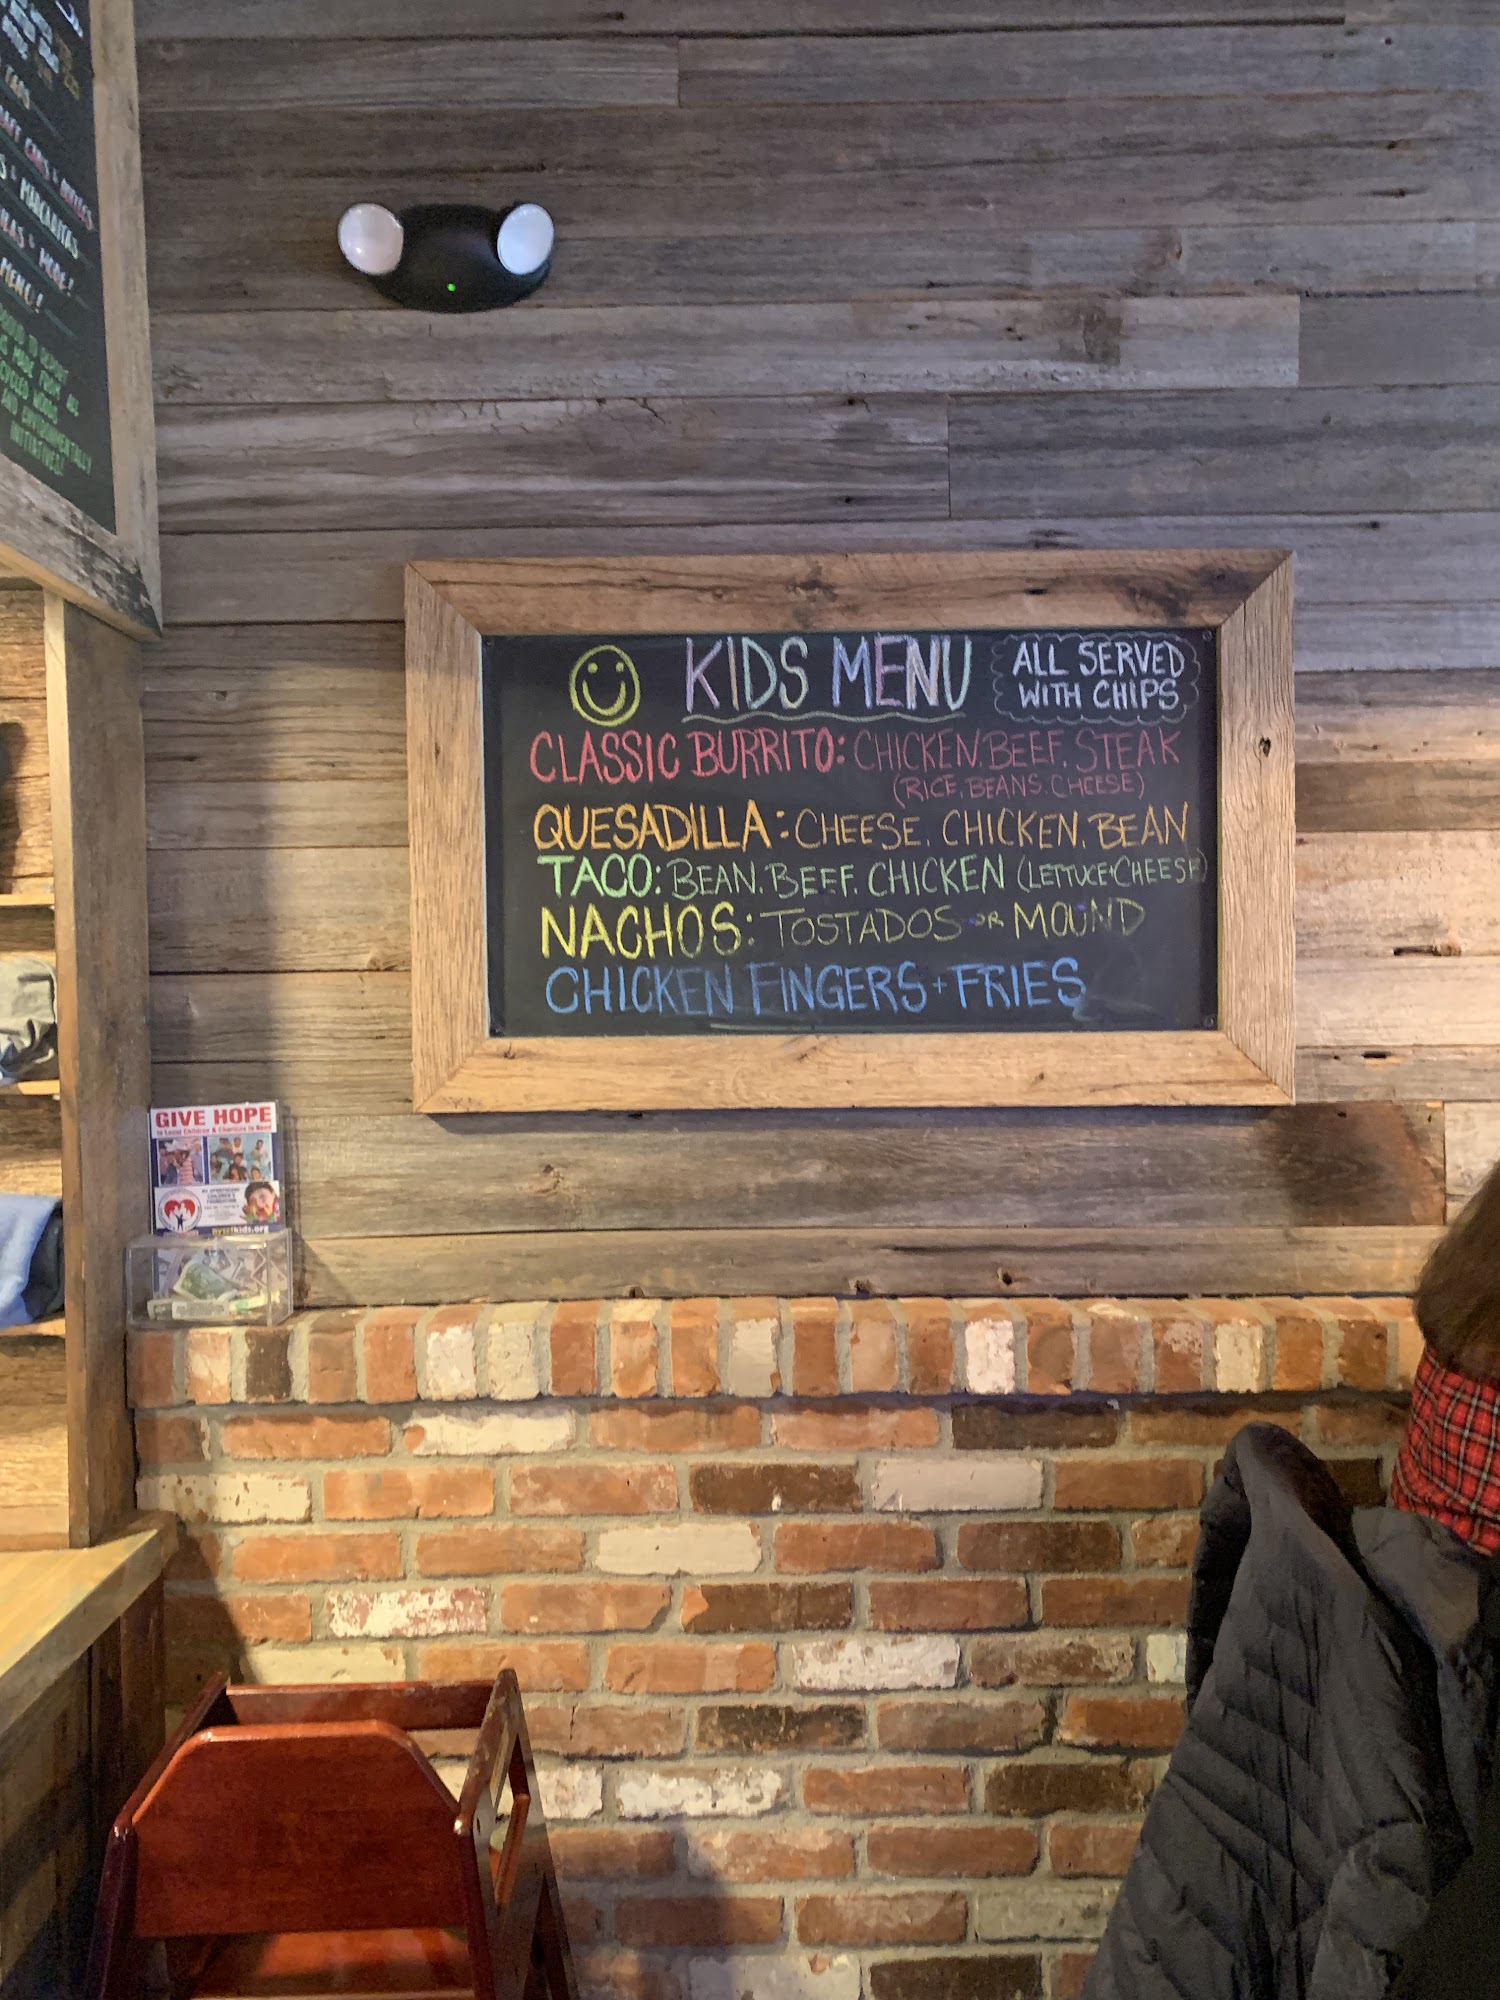 TACO
CANS & BOTTLES
& MARGARITAS
& MORE!
MENU!
MADE FROM
AND ENVIRONMENTALLY
INITIATIVES!
KIDS MENU
ALL SERVED
WITH CHIPS
CLASSIC BURRITO: CHICKEN. BEEF. STEAK
(RICE. BEANS. CHEESE)
QUESADILLA: CHEESE. CHICKEN. BEAN
TACO: BEAN. BEEF. CHICKEN (LETTUCE+CHEESE)
NACHOS: TOSTADOS OR MOUND
CHICKEN FINGERS + FRIES
GIVE HOPE
to Local Children & Charities in Need